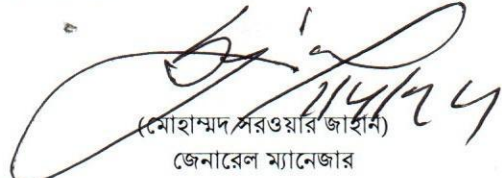 (মোহাম্মদ সরওয়ার জাহান)
জেনারেল ম্যানেজার